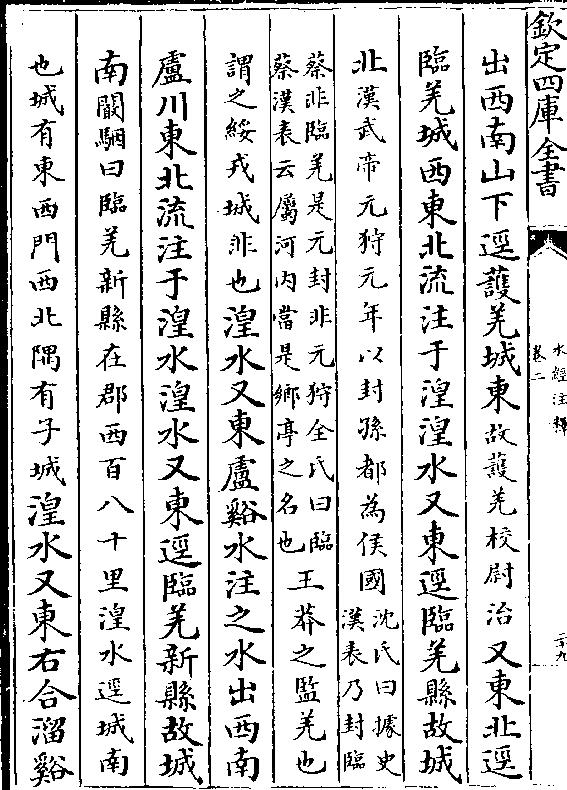 欽定四庫全書
水經注釋
卷二
二十九
出西南山下逕護羌城東故護羌校尉治又東北逕
臨羌城西東北流注于湟湟水又東逕臨羌縣故城
北漢武帝元狩元年以封孫都為侯國沈氏曰據史漢表乃封臨
蔡非臨羌是元封非元狩全氏曰臨蔡漢表云屬河内當是鄉亭之名也王莽之監羌也
謂之綏戎城非也湟水又東盧谿水注之水出西南
盧川東北流注于湟水湟水又東逕臨羌新縣故城
南闞駰曰臨羌新縣在郡西百八十里湟水逕城南
也城有東西門西北隅有子城湟水又東右合溜谿